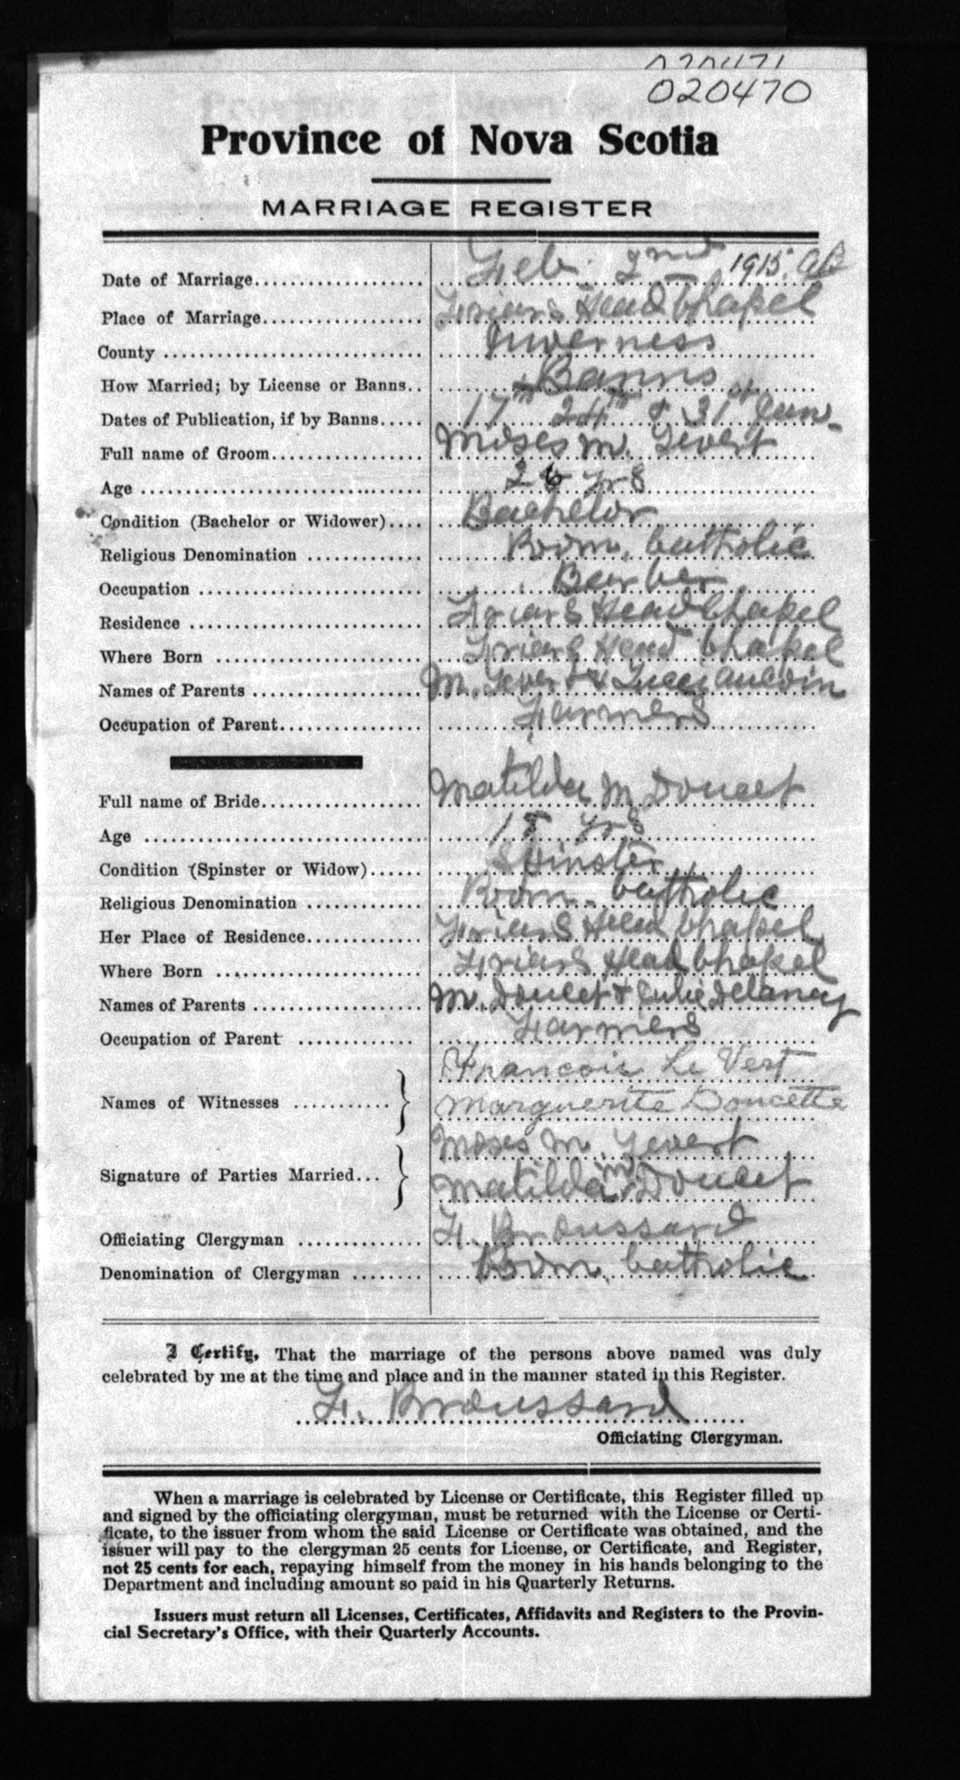 020471
020470
Province of Nova Scotia
MARRIAGE REGISTER
Date of Marriage.................... Feb. 2nd 1915.
Place of Marriage................... Friars Head Chapel
County ............................ Inverness
How Married; by License or Banns.. Banns
Dates of Publication, if by Banns..... 17th 24th & 31st Jan.
Full name of Groom.................. Moses M. Levert
Age ............................... 26 yrs
Condition (Bachelor or Widower).... Bachelor
Religious Denomination ............. Rom. Catholic
Occupation ......................... Barber
Residence .......................... Friars Head Chapel
Where Born ........................ Friars Head Chapel
Names of Parents ................... M. Levert &
Occupation of Parent................ Farmers
Full name of Bride.................. Matilda M Doucet
Age ............................... 18 yrs
Condition (Spinster or Widow)...... Spinster
Religious Denomination ............. Rom. Catholic
Her Place of Residence............. Friars Head Chapel
Where Born ....................... Friars Head Chapel
Names of Parents ................... M. Doucet & Julie Delaney
Occupation of Parent ............. Farmers
Francois Le Vert
Names of Witnesses ........... Marguerite Doucette
Moses M. Levert
Signature of Parties Married... Matilda M Doucet
Officiating Clergyman .............. F. Broussard
Denomination of Clergyman ........ Rom. Catholic
I Certify, That the marriage of the persons above named was duly
celebrated by me at the time and place and in the manner stated in this Register.
F. Broussard
Officiating Clergyman.
When a marriage is celebrated by License or Certificate, this Register filled up
and signed by the officiating clergyman, must be returned with the License or Certi-
ficate, to the issuer from whom the said License or Certificate was obtained, and the
issuer will pay to the clergyman 25 cents for License, or Certificate, and Register,
not 25 cents for each, repaying himself from the money in his hands belonging to the
Department and including amount so paid in his Quarterly Returns.
Issuers must return all Licenses, Certificates, Affidavits and Registers to the Provin-
cial Secretary's Office, with their Quarterly Accounts.